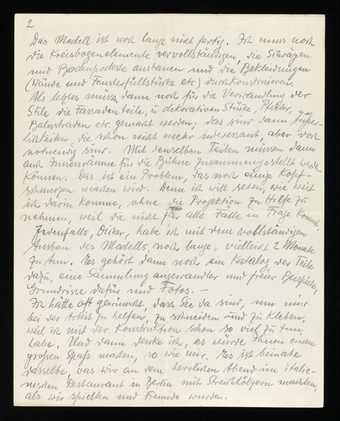 2
Das Modell ist noch lange nicht fertig. Ich muss noch
die Kreisbogenelemente vervollständigen, die Schrägen
und Bodenpodeste ausbauen und die Bekleidungen
(Wände und Fensterfüllstücke etc) durchkonstruieren.
Als letztes müssen dann noch für die Verwandlung der
Stile die Fassadenteile, u dekorativen Stücke, Pfeiler,
Balustraden etc gemacht werden, das sind dann
die schon nicht mehr interessant, aber doch
notwendig sind. Mit denselben Teilen müssen dann
auch Innenräume für die Bühne zusammengestellt werden
können. Das ist ein Problem, das noch einige Kopf-
schmerzen machen wird. Denn ich will sehen, wie weit
ich darin komme, ohne die Projektion zu Hilfe zu
nehmen, weil die nicht für alle Fälle in Frage kommt.
Jedenfalls, habe ich mit dem vollständigen
Ausbau des Modells, noch lange, vielleicht 2 Monate
zu tun. Es gehört dann noch ein Katalog der Teile
dazu, eine Sammlung angewandter und freier Beispiele,
Grundrisse dafür und Fotos. –
Ich hätte oft gewünscht, dass Sie da sind, um mir
bei der Arbeit zu helfen, zu schneiden und zu kleben,
weil ich mit der Konstruktion schon so viel zu tun
habe. Und dann denke ich, es würde Ihnen einen
großen Spaß machen, so wie mir. Es ist beinahe
dasselbe, was wir an dem herrlichen Abend im Italie-
nischen Restaurant in Berlin mit Streichhölzern machten,
als wir spielten und Freunde wurden.